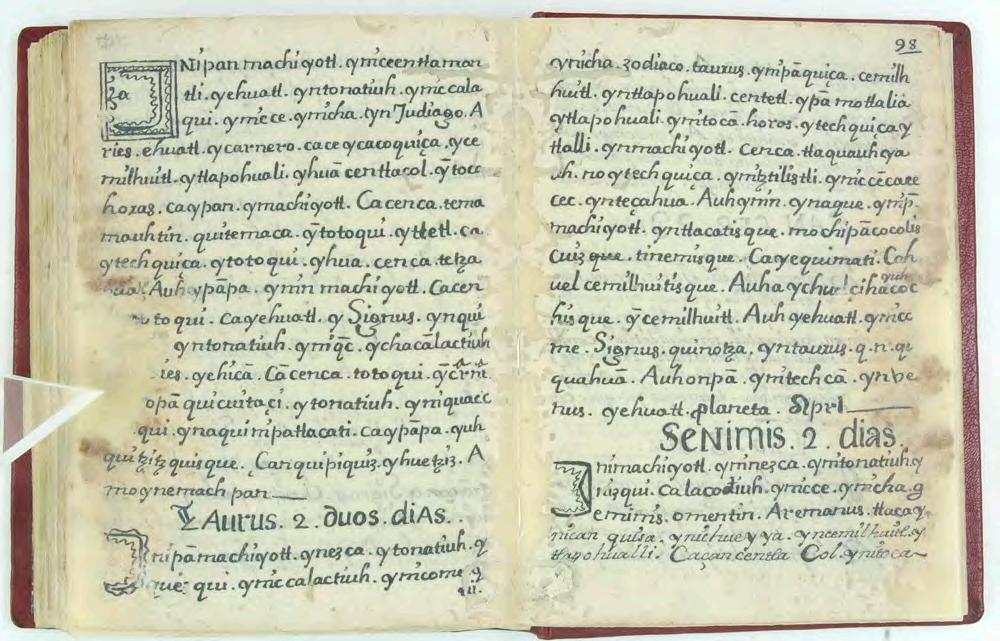 INipan machiyotl. ynicceentlaman
tli. yehuatl. yntonatiuh. ynic cala
qui. ynicce. ynicha. tyn Judiago. A
ries. ehuatl. ycarnero. ca ce ycacoquiça. yce
milhuitl. ytlapohuali. yhuā centlacol. ytoca
horas. ca ypan. ymachiyotl. Ca cenca. tema
mauhtin. quitemaca. ȳtotoqui. ytletl. ca
ytech quiça. ytotoqui. yhua. cenca. tetza
Auh ypāpa. ynin machiyotl. Ca cen
totoqui. ca yehuatl. y Signus. ynqui
yntonatiuh. ynīqc̄. ychacālactiuh
ies. yehicā. Cācenca. totoqui.
opā quicuitaçi. ytonatiuh. yniquac
qui. ynaquinipatlacati. ca ypāpa. yuh
quitzitzquisque. Canquipiquiz. yhuetziz. A
moynemach pan
TAurus. 2. duos. diAs.
Inipā machiyotl. ynezca. ytonatiuh. y
que qui. ynic calactiuh. ynicome y
98
ynicha. zodiaco. taurus. ynipāquiça. cemilh
huitl. yntlapohuali. centetl. ypā motlalia
ytlapohuali. ynitocā. horos. ytech quiça y
tlalli. ynmachiyotl. Cenca. tlaquauhya
uh. no ytech quiça. ynitztilistli. ynic cēcaee
cec. ynteçahua. Auh ynin. ynaque. ynip̄
machiyotl. yntlacatisque. mochipācocolis
cuiz que. tinemisque. Ca yequimati. Cah
uel cemilhuitisque. Auha ychualcihacoc
yuh
hisque. ȳcemilhuitl. Auh yehuatl. ynicc
me. Signus. quinotza. yntaurus. q. n. qi
quahuā. Auh onpā. ynitech cā. ynve
nus. yehuatl. planeta. Aprl
SeNimis. 2. dias.
Inimachiyotl. yninezca. ynitonatiuh. y
niqui. calacodiuh. ynicce. ynicha. g
eminis. omentin. Aremanus. tlacay
nican quisa. ynichueyya. yncemilhuitl. y
tlapohualli. Caçan centla Col. ynitoca